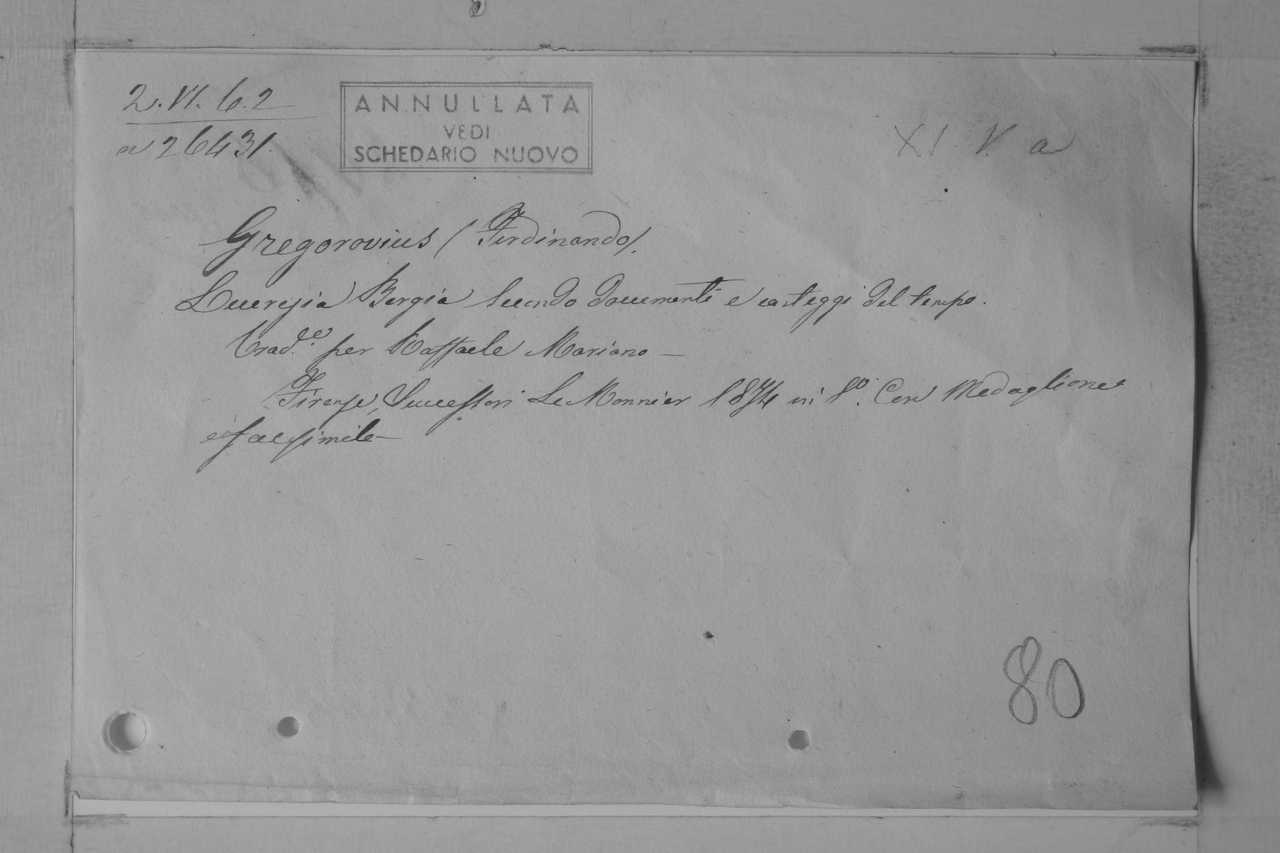 2.VI.6.2
a 26431.
ANNULLATA
VEDI
SCHEDARIO NUOVO
XI. V. a
Gregorovius (Ferdinando).
Lucrezia Borgia secondo documenti e carteggi del tempo.
Trad.ne per Raffaele Mariano —
Firenze, Successori Le Monnier 1874 in 8°. Con Medaglione
e facsimile —
80